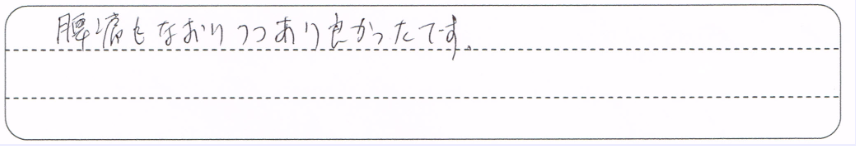 腰痛もなおりつつあり良かったです。